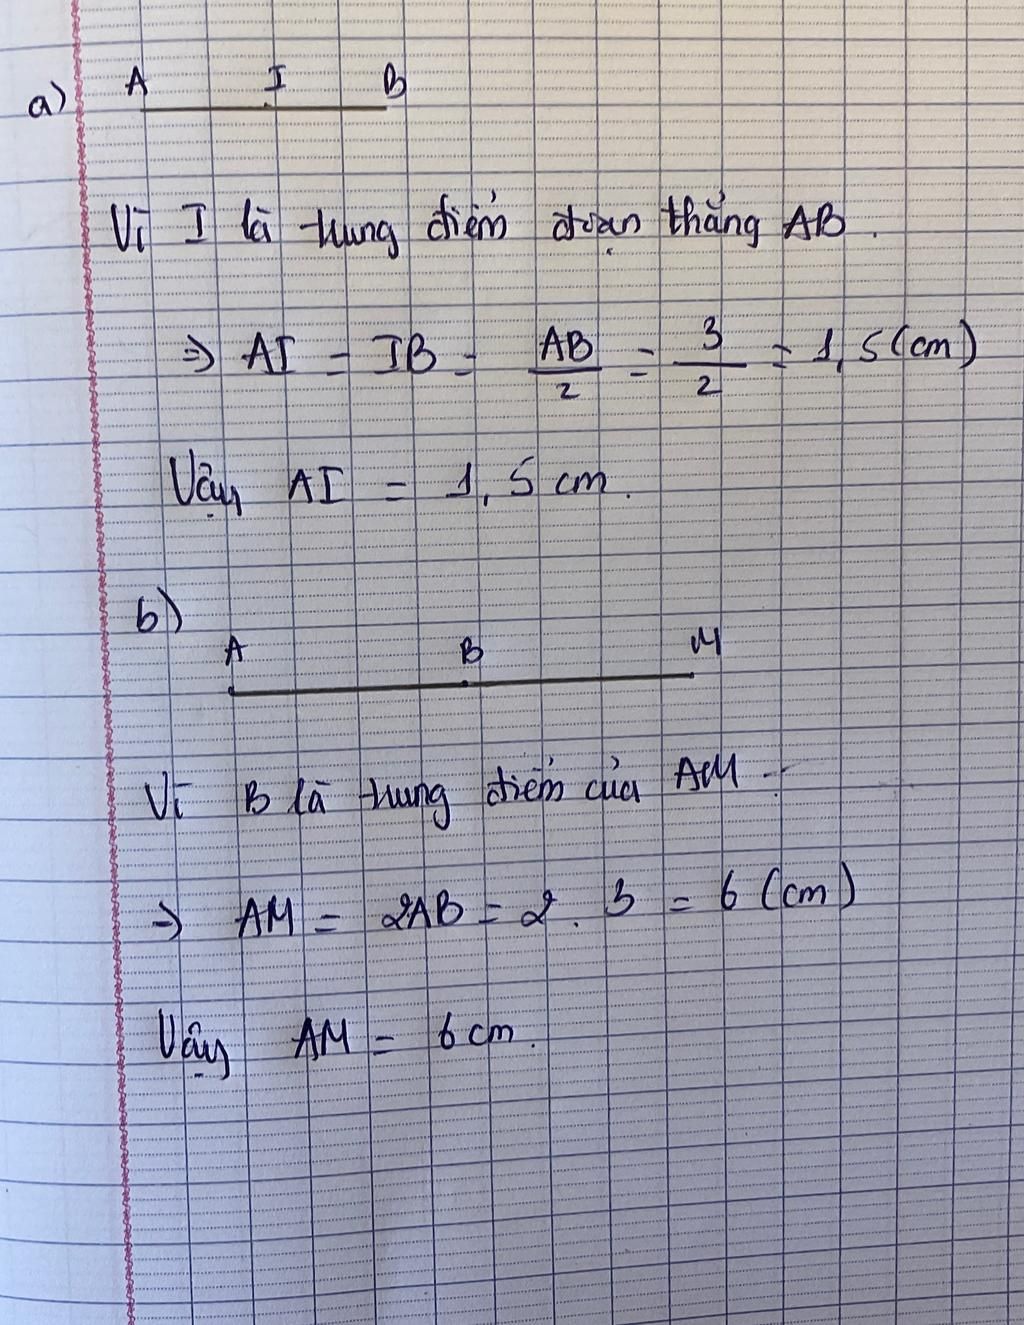 a)
A I B
Vì I là trung điểm đoạn thẳng AB.
⇒ AI = IB = AB/2 = 3/2 = 1,5 (cm)
Vậy AI = 1,5 cm.
b)
A B M
Vì B là trung điểm của AM.
⇒ AM = 2AB = 2 . 3 = 6 (cm)
Vậy AM = 6 cm.